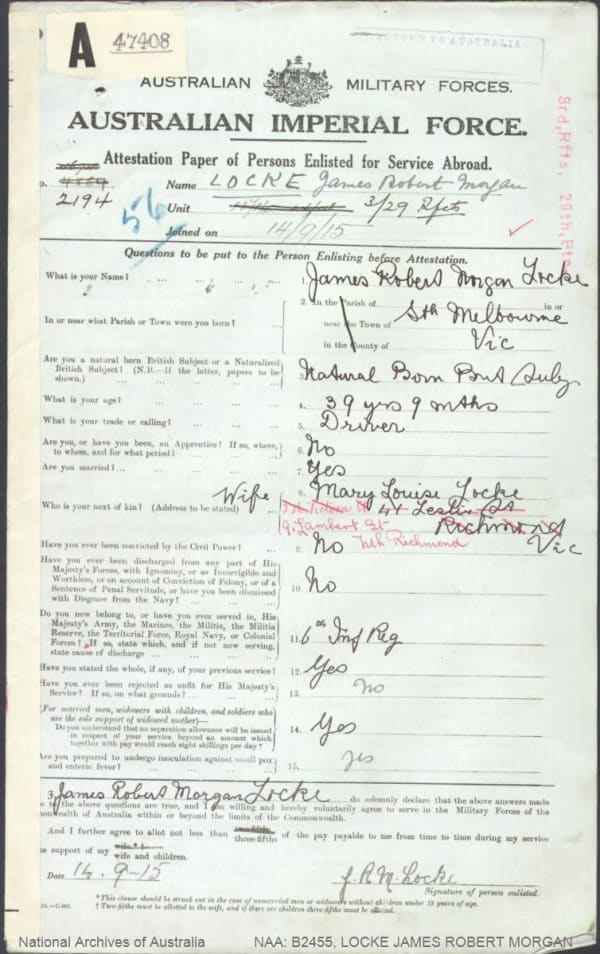 A 47408
AUSTRALIAN MILITARY FORCES.
AUSTRALIAN IMPERIAL FORCE.
3rd, Rfts, 29th, Btn
Attestation Paper of Persons Enlisted for Service Abroad.
o. 4889 Name LOCKE James Robert Morgan
2194 Unit 3/29 Rfcts
56
Joined on 14/9/15
Questions to be put to the Person Enlisting before Attestation.
What is your Name? ... ... ... 1. James Robert Morgan Locke
In or near what Parish or Town were you born? ... 2. In the Parish of in or
near the Town of Sth Melbourne
in the County of Vic
Are you a natural born British Subject or a Naturalized
British Subject? (N.B.—If the latter, papers to be
shown.) ... ... ... 3. Natural Born Brit Subj
What is your age? ... ... ... 4. 39 yrs 9 mths
What is your trade or calling? ... ... 5. Driver
Are you, or have you been, an Apprentice? If so, where,
to whom, and for what period? ... ... 6. No
Are you married? ... ... ... 7. Yes
Who is your next of kin? (Address to be stated) ... Wife 8. Mary Louise Locke
44 Leslie St
Richmond
9. Lambert St
Nth Richmond Vic
Have you ever been convicted by the Civil Power? ... 9. No
Have you ever been discharged from any part of His
Majesty's Forces, with Ignominy, or as Incorrigible and
Worthless, or on account of Conviction of Felony, or of a
Sentence of Penal Servitude, or have you been dismissed
with Disgrace from the Navy? ... ... 10. No
Do you now belong to, or have you ever served in, His
Majesty's Army, the Marines, the Militia, the Militia
Reserve, the Territorial Force, Royal Navy, or Colonial
Forces? If so, state which, and if not now serving,
state cause of discharge ... ... 11. 6th Inf Reg
Have you stated the whole, if any, of your previous service? 12. Yes
Have you ever been rejected as unfit for His Majesty's
Service? If so, on what grounds? ... ... 13. No
(For married men, widowers with children, and soldiers who
are the sole support of widowed mother)—
Do you understand that no separation allowance will be issued
in respect of your service beyond an amount which
together with pay would reach eight shillings per day? ... 14. Yes
Are you prepared to undergo inoculation against small pox
and enteric fever? ... ... ... 15. yes
James Robert Morgan Locke do solemnly declare that the above answers made
to the above questions are true, and I am willing and hereby voluntarily agree to serve in the Military Forces of the
onwealth of Australia within or beyond the limits of the Commonwealth.
And I further agree to allot not less than two-fifths
three-fifths of the pay payable to me from time to time during my service
e support of my wife.* †
wife and children.
Date 14.9-15 J. R. M. Locke
Signature of person enlisted.
* This clause should be struck out in the case of unmarried men or widowers without children under 18 years of age.
† Two-fifths must be allotted to the wife, and if there are children three-fifths must be allotted.
National Archives of Australia NAA: B2455, LOCKE JAMES ROBERT MORGAN